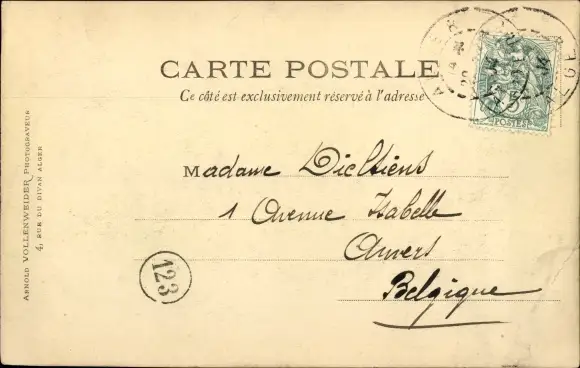 CARTE POSTALE
Ce côté est exclusivement réservé à l'adresse
POSTES
Madame Dieltiens
1 Avenue Isabelle
Anvers
Belgique
123
ARNOLD VOLLENWEIDER, PHOTOGRAVEUR
4, RUE DU DIVAN ALGER